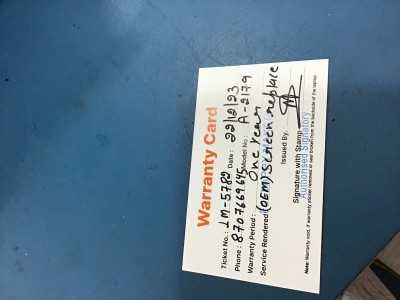 Warranty Card
Ticket No.: LM-5782 Date: 22/12/23
Phone: 8707669645 Model No: A-2179
Warranty Period: One year
Service Rendered (OEM) Screen replace
Issued By:
Signature with Stamp
Authorised Signatory
Note: Warranty void, if warranty sticker removed or seal broken from the backside of the laptop.